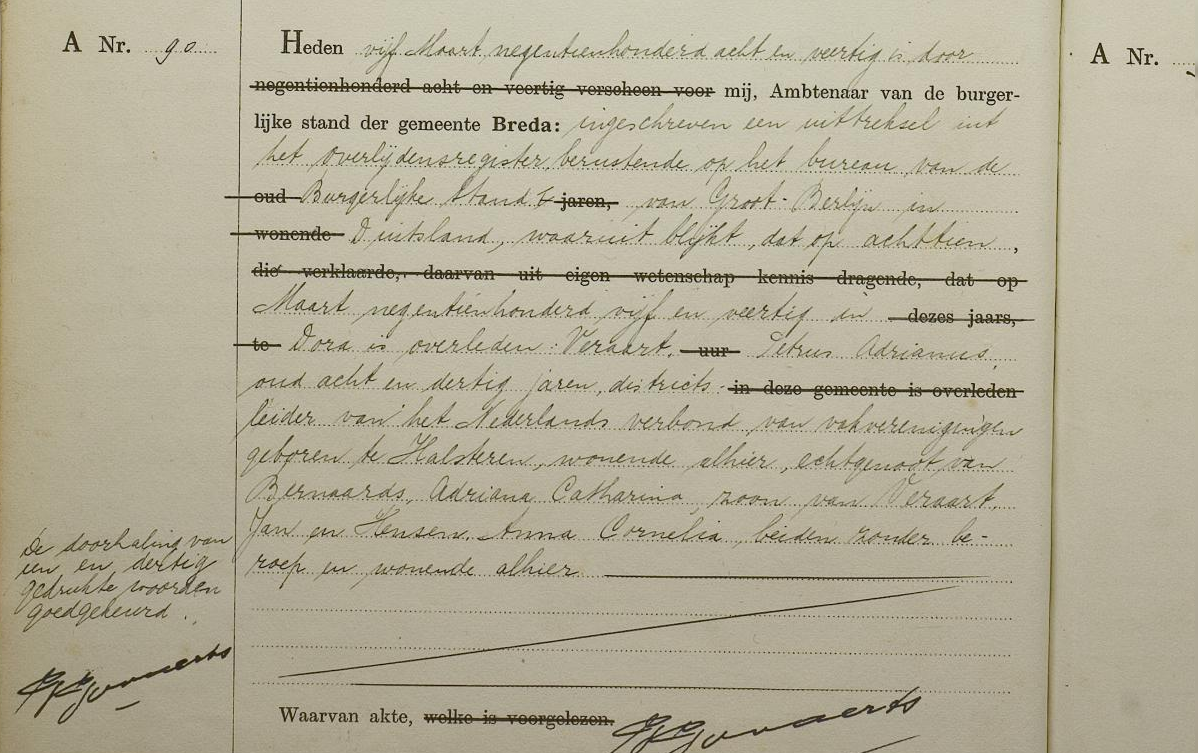 A Nr. 90
Heden vijf Maart negentienhonderd acht en veertig is door
negentienhonderd acht en veertig verscheen voor mij, Ambtenaar van de burger-
lijke stand der gemeente Breda: ingeschreven een uittreksel uit
het overlijdensregister, berustende op het bureau van de
oud Burgerlijke Stand jaren, van Groot-Berlijn in
wonende Duitsland, waaruit blijkt, dat op achttien,
die verklaarde, daarvan uit eigen wetenschap kennis dragende, dat op
Maart negentienhonderd vijf en veertig in dezes jaars,
te Dora is overleden: Veraart, uur Petrus Adrianus,
oud acht en dertig jaren, districts- in deze gemeente is overleden
leider van het Nederlands verbond van vakverenigingen
geboren te Halsteren, wonende alhier, echtgenoot van
Bernaards, Adriana Catharina, zoon van Veraart,
Jan en Hensen, Anna Cornelia, beiden zonder be-
roep en wonende alhier
De doorhaling van
een en dertig
gedrukte woorden
goedgekeurd.
Waarvan akte, welke is voorgelezen.
A Nr.